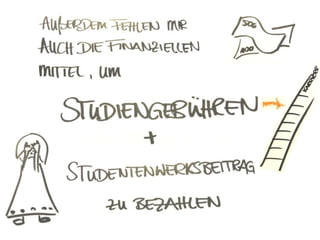 AUßERDEM FEHLEN MIR
AUCH DIE FINANZIELLEN
MITTEL, UM
STUDIENGEBÜHREN →
+
STUDENTENWERKSBEITRAG
ZU BEZAHLEN